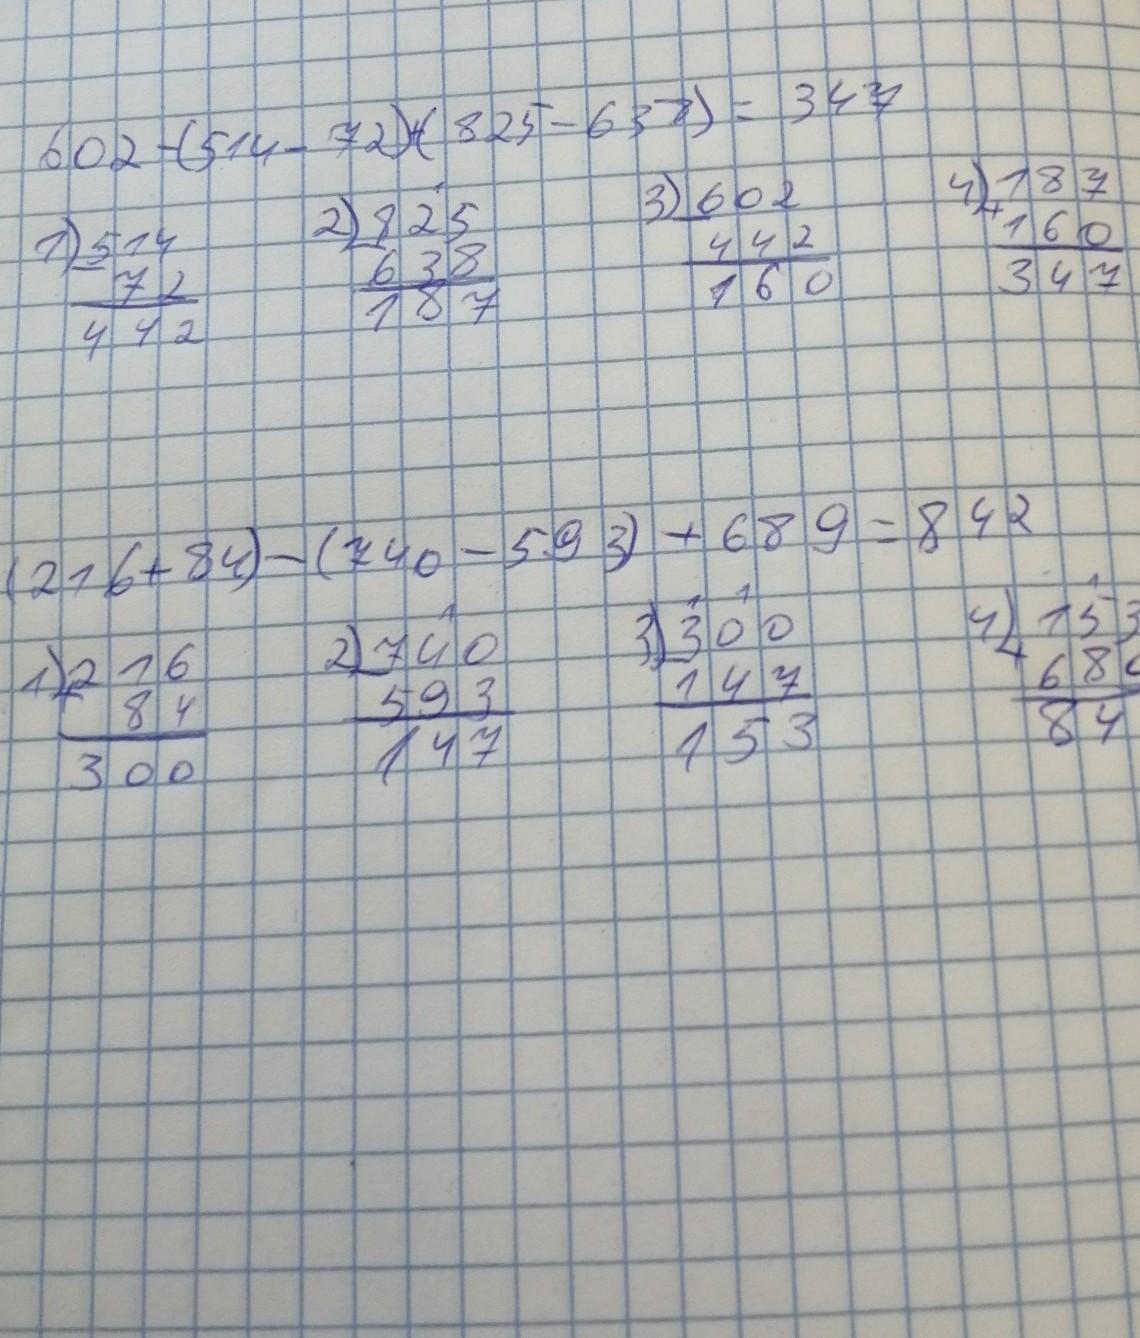 602-(514-72)+(825-638)=347
1) 514 2) 825 3) 602 4) 187
- 72 - 638 - 442 + 160
442 187 160 347
(216+84)-(740-593)+689=842
1) 216 2) 740 3) 300 4) 153
+ 84 - 593 - 147 + 68
300 147 153 84